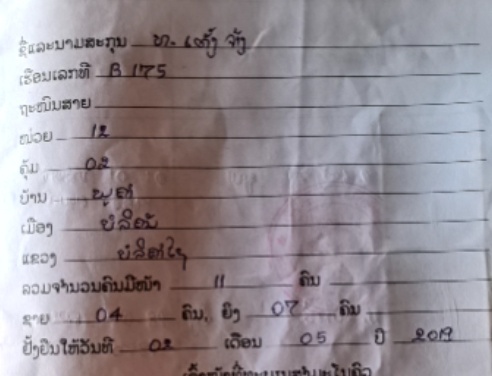 ຊື່ແລະນາມສະກຸນ ທ. ເຕັ້ງ ຈັ່ງ
ເຮືອນເລກທີ B 175
ຖະໜົນສາຍ
ໜ່ວຍ 12
ຄຸ້ມ 02
ບ້ານ ພູຄຳ
ເມືອງ ບໍລິຄັນ
ແຂວງ ບໍລິຄຳໄຊ
ລວມຈຳນວນຄົນມີໜ້າ 11 ຄົນ
ຊາຍ 04 ຄົນ, ຍິງ 07 ຄົນ
ຢັ້ງຢືນໃຫ້ວັນທີ 02 ເດືອນ 05 ປີ 2019